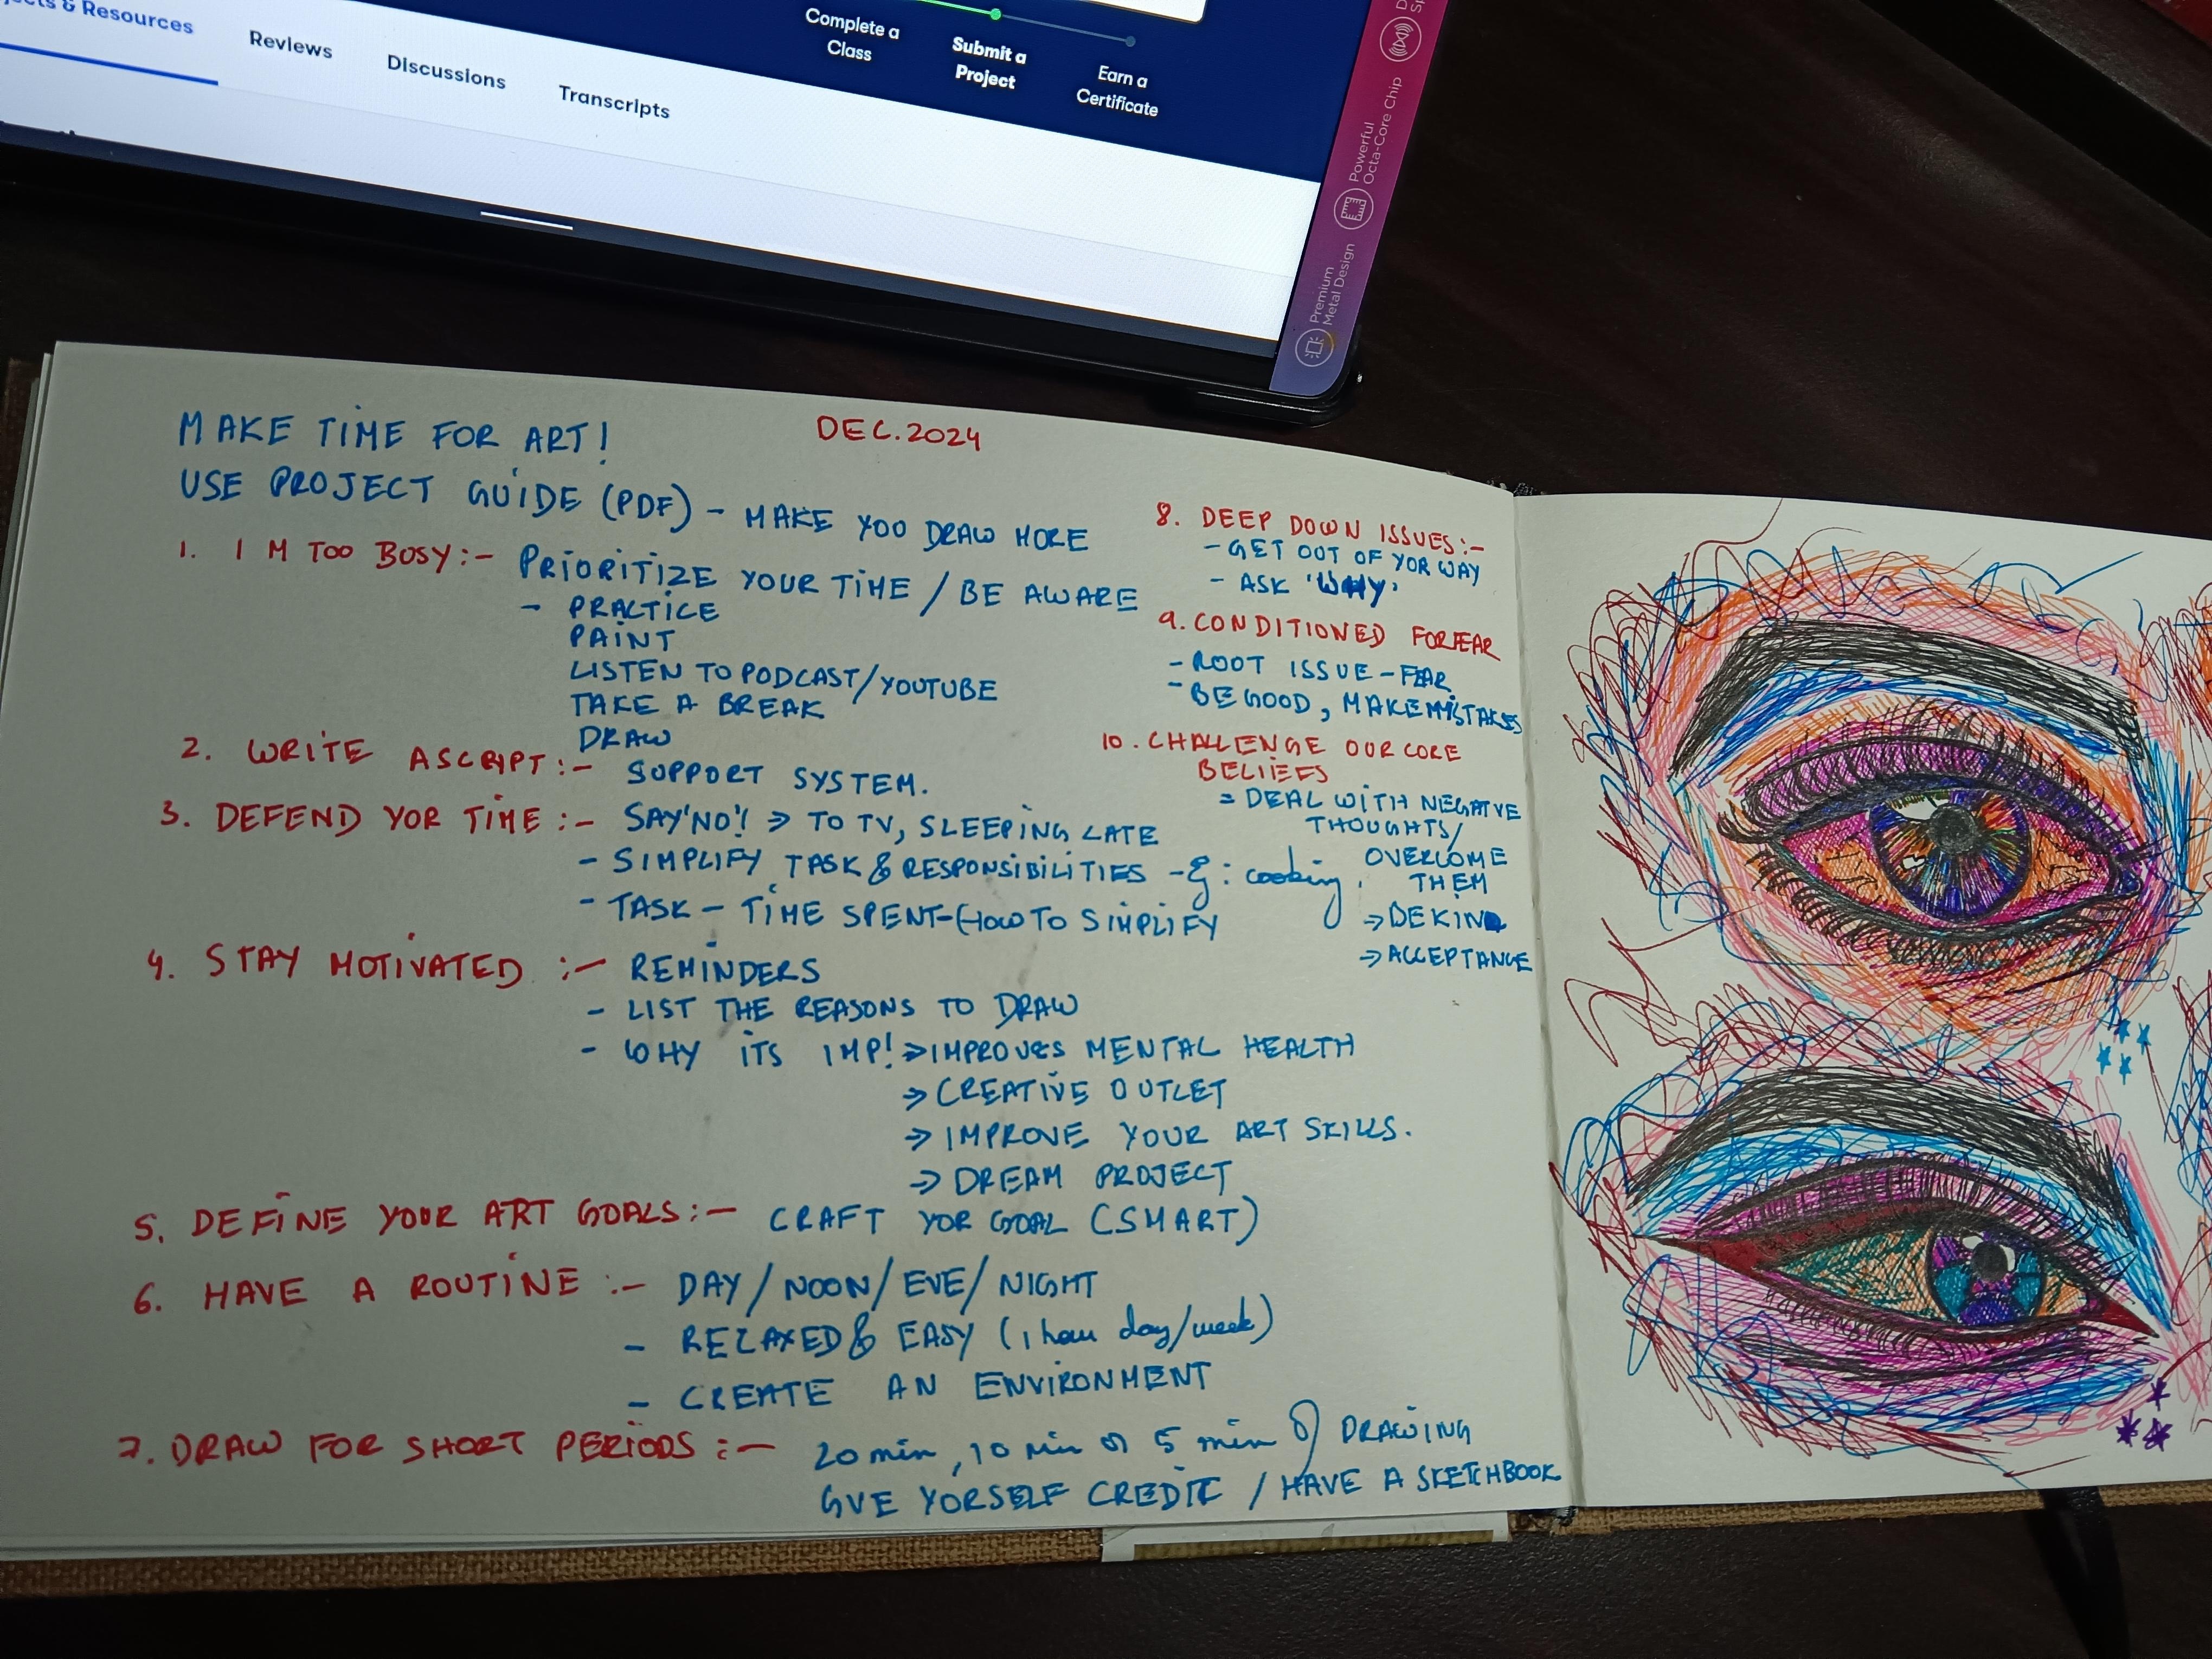 cts & Resources
Reviews
Discussions
Transcripts
Complete a
Class
Submit a
Project
Earn a
Certificate
Powerful
Octa-Core Chip
Premium
Metal Design
MAKE TIME FOR ART!
DEC.2024
USE PROJECT GUIDE (PDF) - MAKE YOO DRAW MORE
1. I M TOO BUSY:- PRIORITIZE YOUR TIME / BE AWARE
- PRACTICE
PAINT
LISTEN TO PODCAST/YOUTUBE
TAKE A BREAK
DRAW
2. WRITE A SCRIPT:- SUPPORT SYSTEM.
3. DEFEND YOR TIME :- SAY 'NO'! => TO TV, SLEEPING LATE
- SIMPLIFY TASK & RESPONSIBILITIES - Eg: cooking.
- TASK - TIME SPENT - HOW TO SIMPLIFY
4. STAY MOTIVATED :- REMINDERS
- LIST THE REASONS TO DRAW
- WHY ITS IMP! => IMPROVES MENTAL HEALTH
=> CREATIVE OUTLET
=> IMPROVE YOUR ART SKILLS.
=> DREAM PROJECT
5. DEFINE YOUR ART GOALS:- CRAFT YOR GOAL (SMART)
6. HAVE A ROUTINE :- DAY/NOON/EVE/NIGHT
- RELAXED & EASY (1 hour day/week)
- CREATE AN ENVIRONMENT
7. DRAW FOR SHORT PERIODS :- 20 min, 10 min or 5 min of DRAWING
GVE YORSELF CREDIT / HAVE A SKETCHBOOK
8. DEEP DOWN ISSUES:-
- GET OOT OF YOR WAY
- ASK 'WHY'
9. CONDITIONED FOR FEAR
- ROOT ISSUE - FEAR
- BE GOOD, MAKE MISTAKES
10. CHALLENGE OUR CORE
BELIEFS
= DEAL WITH NEGATVE
THOUGHTS/
OVERCOME
THEM
=> BE KIND
=> ACCEPTANCE